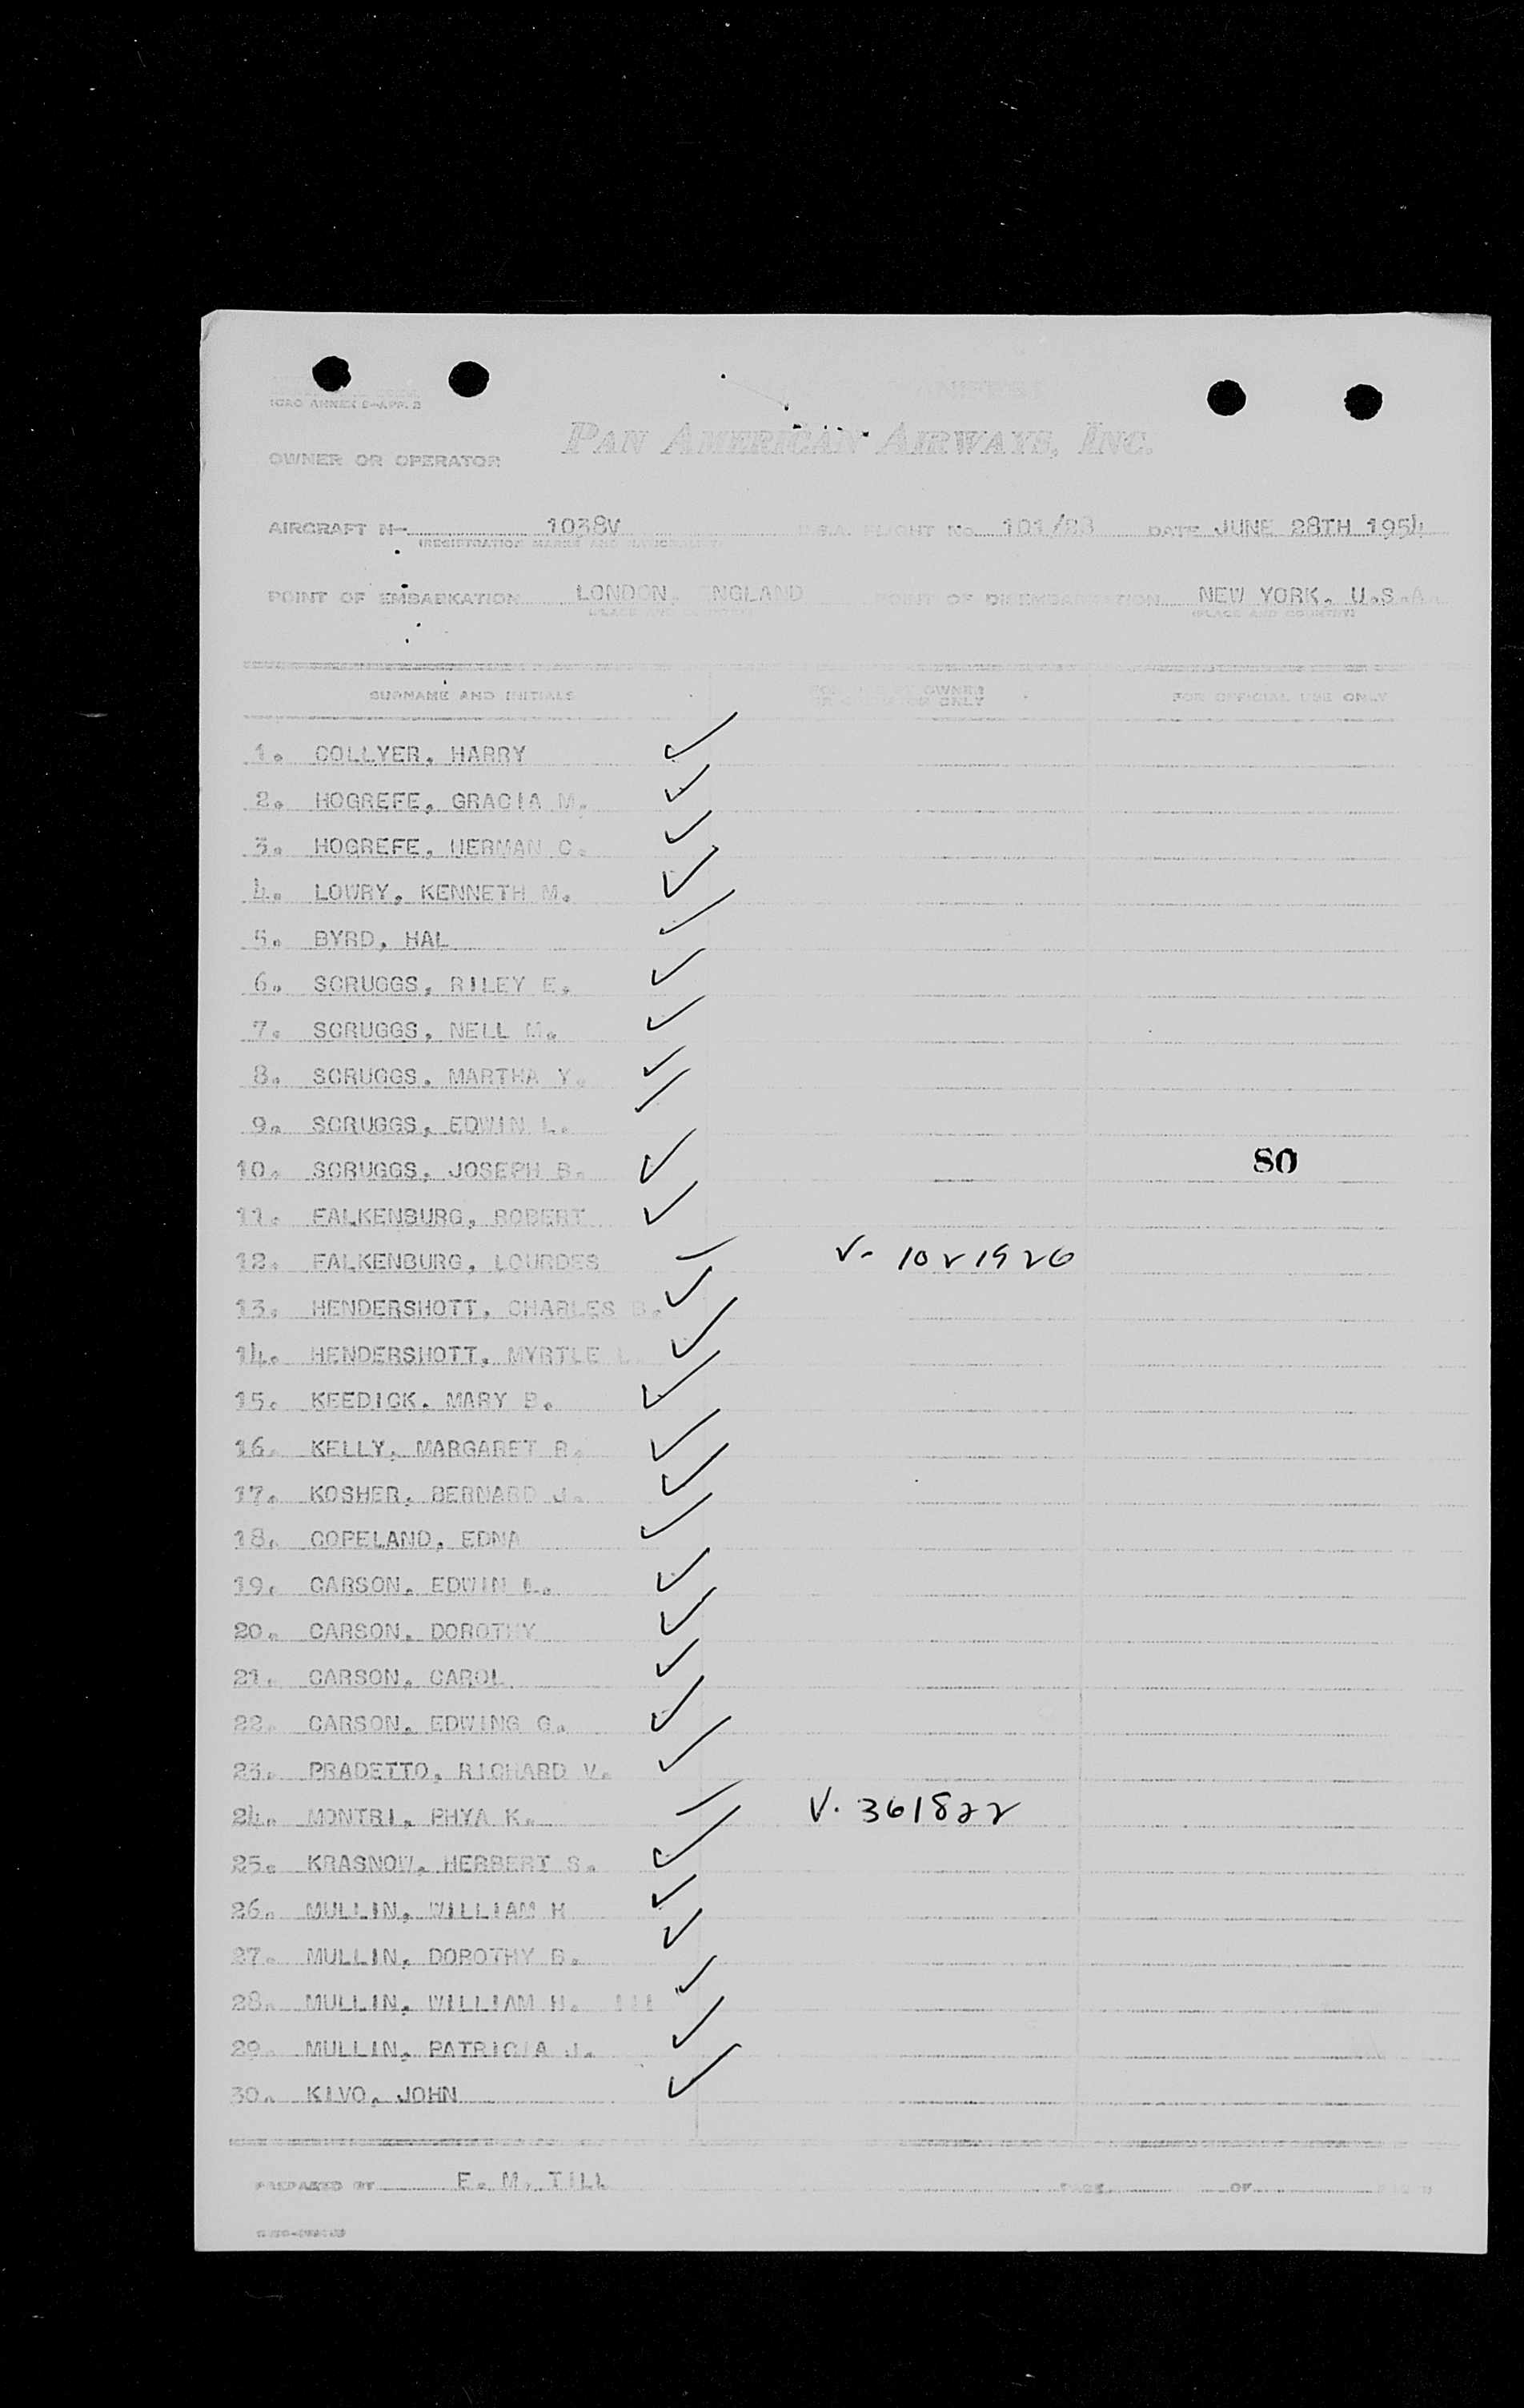 ICAO ANNEX 9-APP. 2
PAN AMERICAN AIRWAYS, INC.
OWNER OR OPERATOR
AIRCRAFT N- 1038V FLIGHT NO. 101/28 DATE JUNE 28TH 1954
(REGISTRATION MARKS AND NATIONALITY)
POINT OF EMBARKATION LONDON, ENGLAND POINT OF DISEMBARKATION NEW YORK, U.S.A.
(PLACE AND COUNTRY) (PLACE AND COUNTRY)
SURNAME AND INITIALS FOR USE BY OWNER OR OPERATOR ONLY FOR OFFICIAL USE ONLY
1. COLLYER, HARRY ✓
2. HOGREFE, GRACIA M. ✓
3. HOGREFE, HERMAN C. ✓
4. LOWRY, KENNETH M. ✓
5. BYRD, HAL ✓
6. SCRUGGS, RILEY E. ✓
7. SCRUGGS, NELL M. ✓
8. SCRUGGS, MARTHA Y. ✓
9. SCRUGGS, EDWIN L. ✓
10. SCRUGGS, JOSEPH B. ✓ 80
11. FALKENBURG, ROBERT ✓
12. FALKENBURG, LOURDES V- 1021926
13. HENDERSHOTT, CHARLES B. ✓
14. HENDERSHOTT, MYRTLE L ✓
15. KEEDICK, MARY B. ✓
16. KELLY, MARGARET R. ✓
17. KOSHER, BERNARD J. ✓
18. COPELAND, EDNA ✓
19. CARSON, EDWIN L. ✓
20. CARSON, DOROTHY ✓
21. CARSON, CAROL ✓
22. CARSON, EDWING G. ✓
23. PRADETTO, RICHARD V. ✓
24. MONTRI, PHYA K. V. 361822
25. KRASNOW, HERBERT S. ✓
26. MULLIN, WILLIAM H ✓
27. MULLIN, DOROTHY B. ✓
28. MULLIN, WILLIAM H. III ✓
29. MULLIN, PATRICIA J. ✓
30. KIVO, JOHN ✓
PREPARED BY E. M. TILL PAGE OF